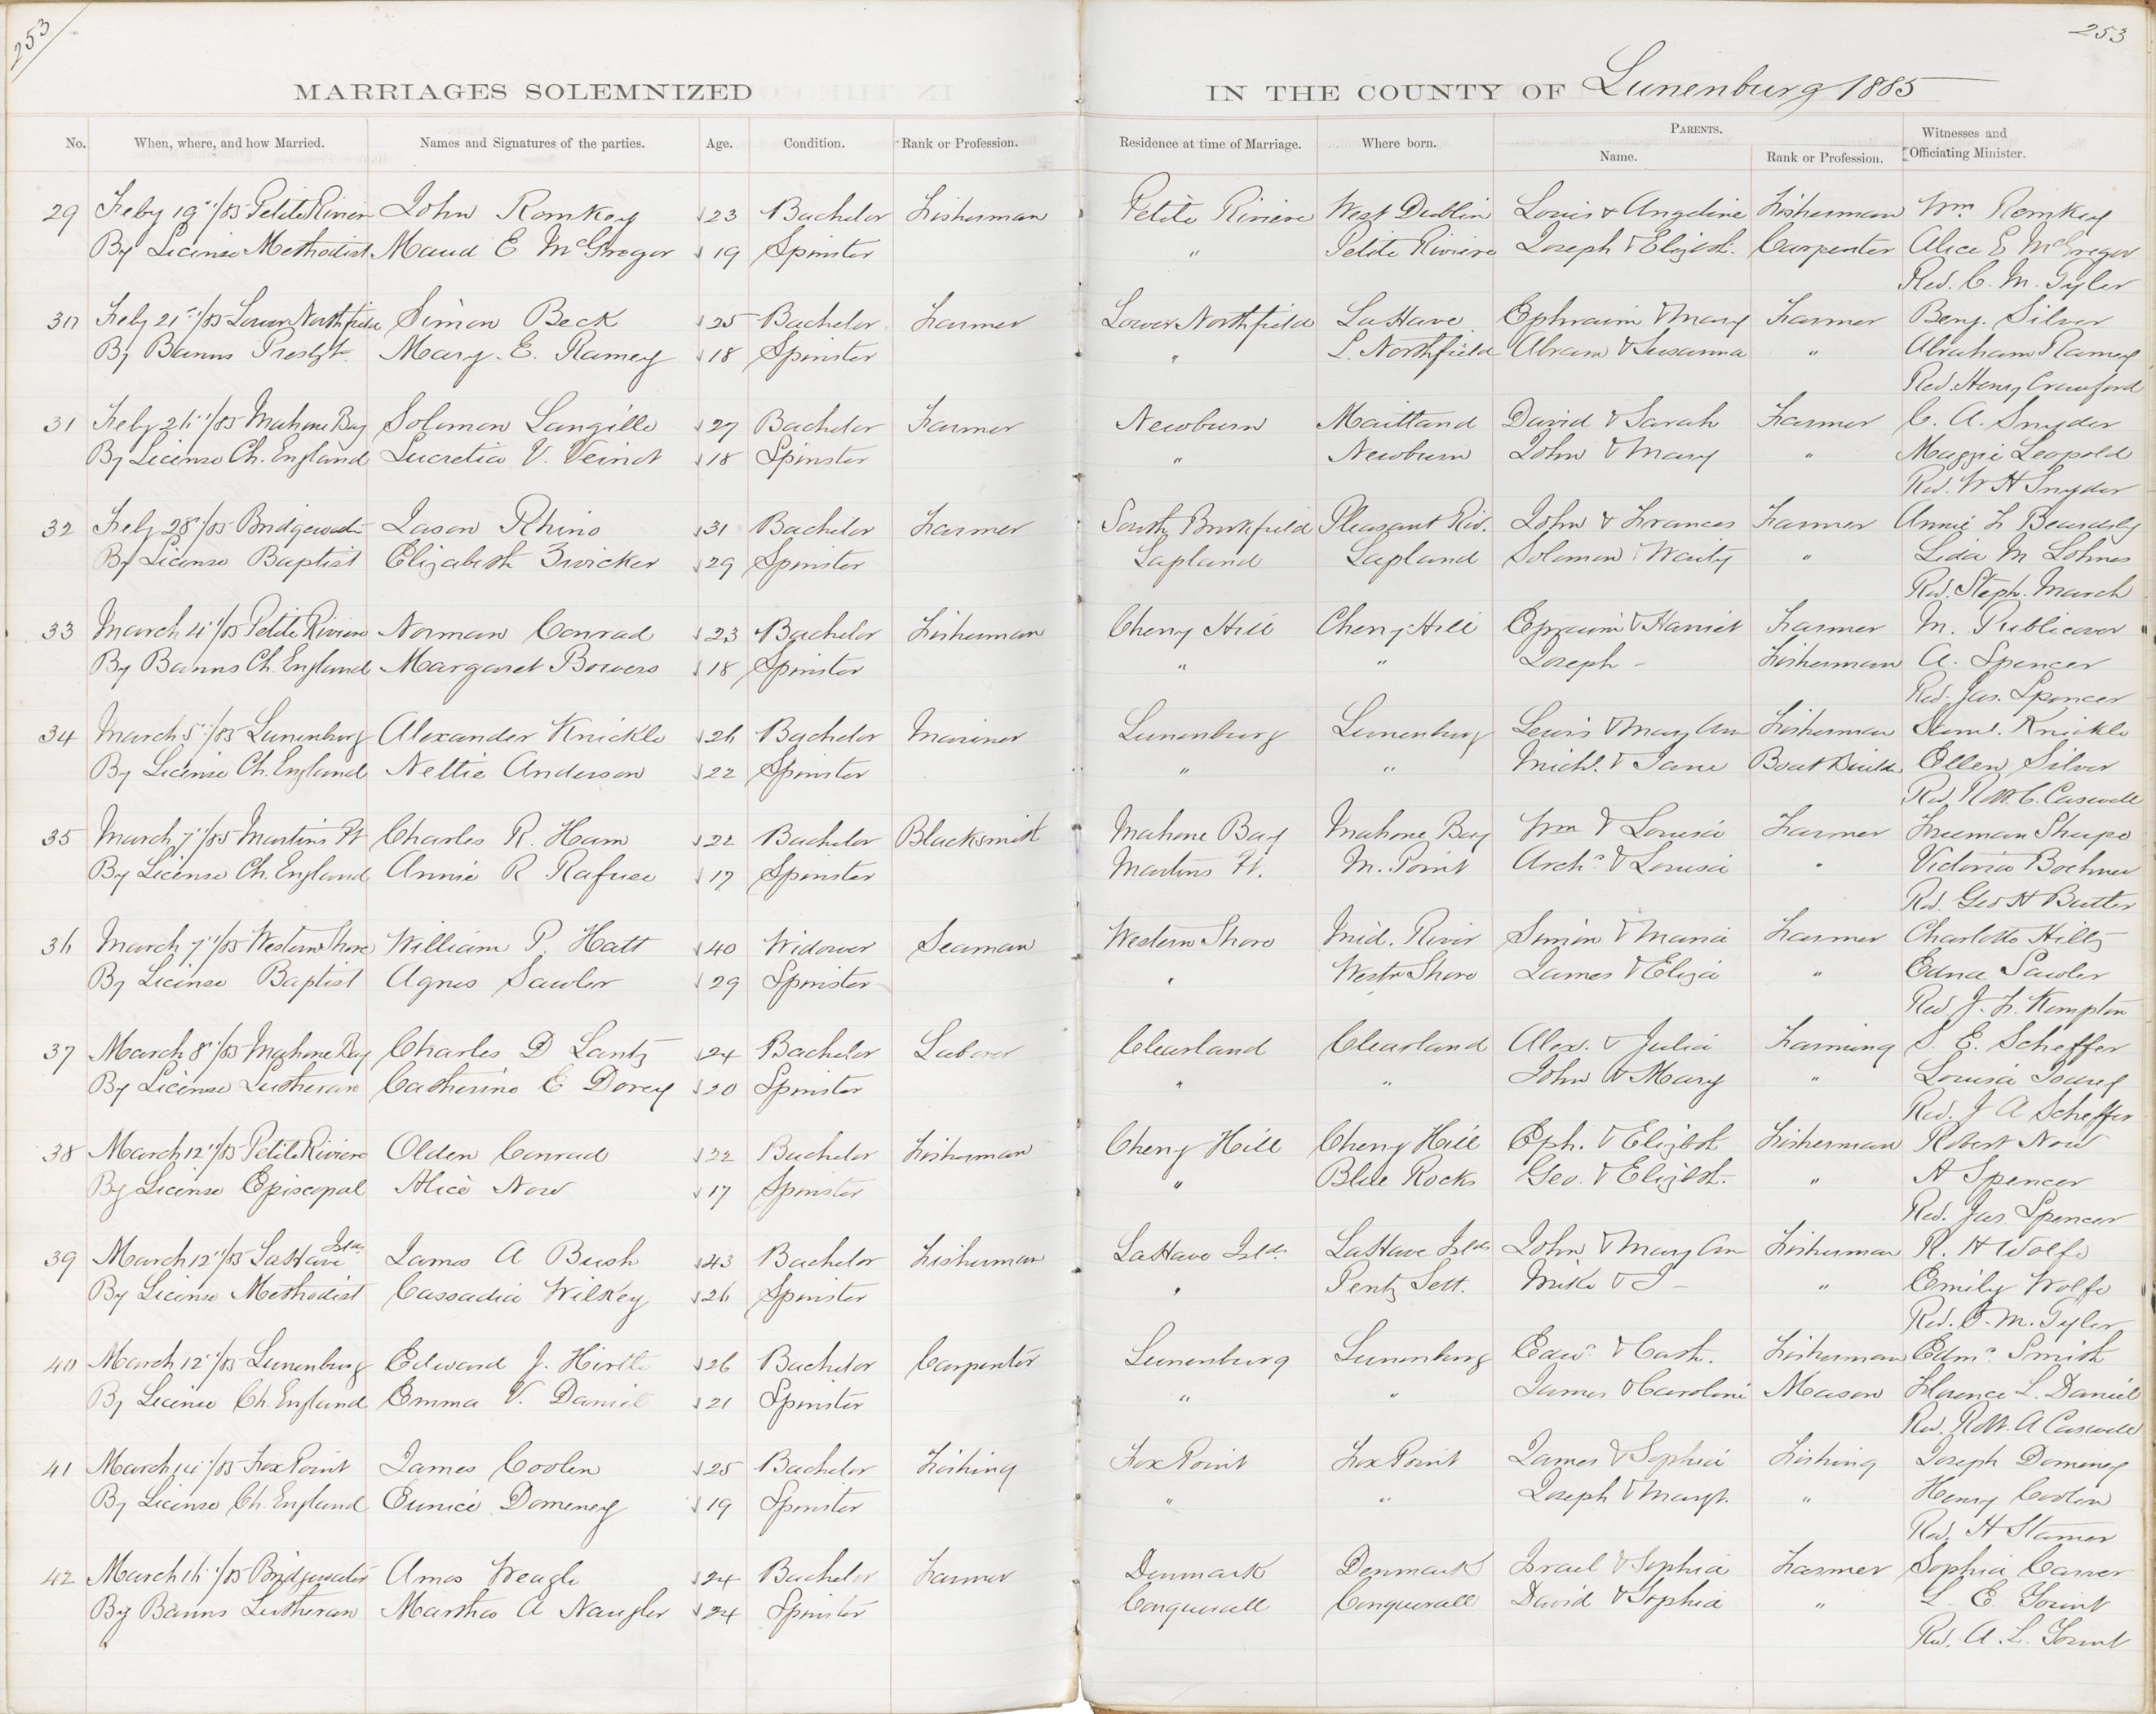 253
253
MARRIAGES SOLEMNIZED IN THE COUNTY OF Lunenburg 1885
No. When, where, and how Married. Names and Signatures of the parties. Age. Condition. Rank or Profession. Residence at time of Marriage. Where born. PARENTS. Name. Rank or Profession. Witnesses and Officiating Minister.
29 Feby 19"/85 Petite Riviere John Romkey 23 Bachelor Fisherman Petite Riviere West Dublin Louis & Angeline Fisherman Wm Romkey
By License Methodist Maud E McGregor 19 Spinster " Petite Riviere Joseph & Elizbth. Carpenter Alice E McGregor
Rev. C. M. Tyler
30 Feby 21st/85 Lower Northfield Simon Beck 25 Bachelor Farmer Lower Northfield LaHave Ephraim & Mary Farmer Benj. Silver
By Banns Presbyt. Mary. E. Ramey 18 Spinster " L. Northfield Abram & Susanna " Abraham Ramey
Rev. Henry Crawford
31 Feby 26"/85 Mahone Bay Solomon Langille 27 Bachelor Farmer Newburn Maitland David & Sarah Farmer C. A. Snyder
By License Ch. England Lucretia V. Veinot 18 Spinster " Newburn John & Mary " Maggie Leopold
Rev. W H Snyder
32 Feby 28"/85 Bridgewater Jason Rhino 31 Bachelor Farmer South Brookfield Pleasant Riv. John & Frances Farmer Annie F Beardsly
By License Baptist Elizabeth Zwicker 29 Spinster Lapland Lapland Solomon & Waity " Lida M Lohnes
Rev. Steph. March
33 March 4"/85 Petite Riviere Norman Conrad 23 Bachelor Fisherman Cherry Hill Cherry Hill Epraim & Harriet Farmer M. Publicover
By Banns Ch. England Margaret Bowers 18 Spinster " " Joseph - Fisherman A. Spencer
Rev. Jas. Spencer
34 March 5"/85 Lunenburg Alexander Knickle 26 Bachelor Mariner Lunenburg Lunenburg Lewis & Mary Ann Fisherman Saml. Knickle
By License Ch. England Nettie Anderson 22 Spinster " " Michl. & Jane Boat Builder Ellen Silver
Rev. C. Caswell
35 March 7"/85 Martins Pt Charles R. Ham 22 Bachelor Blacksmith Mahone Bay Mahone Bay Wm & Louisa Farmer Freeman Sharpe
By License Ch. England Annie R Rafuse 17 Spinster Martins Pt. M. Point Archd & Louisa " Victoria Boehner
Rev. Geo H Butler
36 March 7"/85 Western Shore William P. Hatt 40 Widower Seaman Western Shore Mid. River Simon & Maria Farmer Charlotte Hiltz
By License Baptist Agnes Sawler 29 Spinster " Westn Shore James & Eliza " Edna Sawler
Rev J. F. Kempton
37 March 8"/85 Mahone Bay Charles D Lantz 24 Bachelor Laborer Clearland Clearland Alex. & Julia Farming S. E. Scheffer
By License Lutheran Catherine E Dorey 20 Spinster " " John & Mary " Louisa
Rev. J A Scheffer
38 March 12"/85 Petite Riviere Olden Conrad 22 Bachelor Fisherman Cherry Hill Cherry Hill Eph. & Elizbth Fisherman Robert Now
By License Episcopal Alice Now 17 Spinster " Blue Rocks Geo. & Elizbth. " A Spencer
Rev. Jas. Spencer
39 March 12"/85 LaHave Islds James A Bush 43 Bachelor Fisherman LaHave Islds. LaHave Islds John & Mary Ann Fisherman R. H Wolfe
By License Methodist Cassadia Wilkey 26 Spinster " Pentz Sett. Mike & J - " Emily Wolfe
Rev. C. M. Tyler
40 March 12"/85 Lunenburg Edward J. Hirtle 26 Bachelor Carpenter Lunenburg Lunenburg Edwd & Cath. Fisherman Edmd Smith
By License Ch. England Emma V. Daniel 21 Spinster " " James & Caroline Mason Florence L. Daniel
Rev. A Caswell
41 March 14"/85 Fox Point James Coolen 25 Bachelor Fishing Fox Point Fox Point James & Sophia Fishing Joseph Domeney
By License Ch. England Eunice Domeney 19 Spinster " " Joseph & Margt. " Henry Coolen
Rev. H Stamer
42 March 16"/85 Bridgewater Amos Weagle 24 Bachelor Farmer Denmark Denmark Israel & Sophia Farmer Sophia Carver
By Banns Lutheran Martha A Naugler 24 Spinster Conquerall Conquerall David & Sophia " L. E. Yount
Rev. A. L. Yount